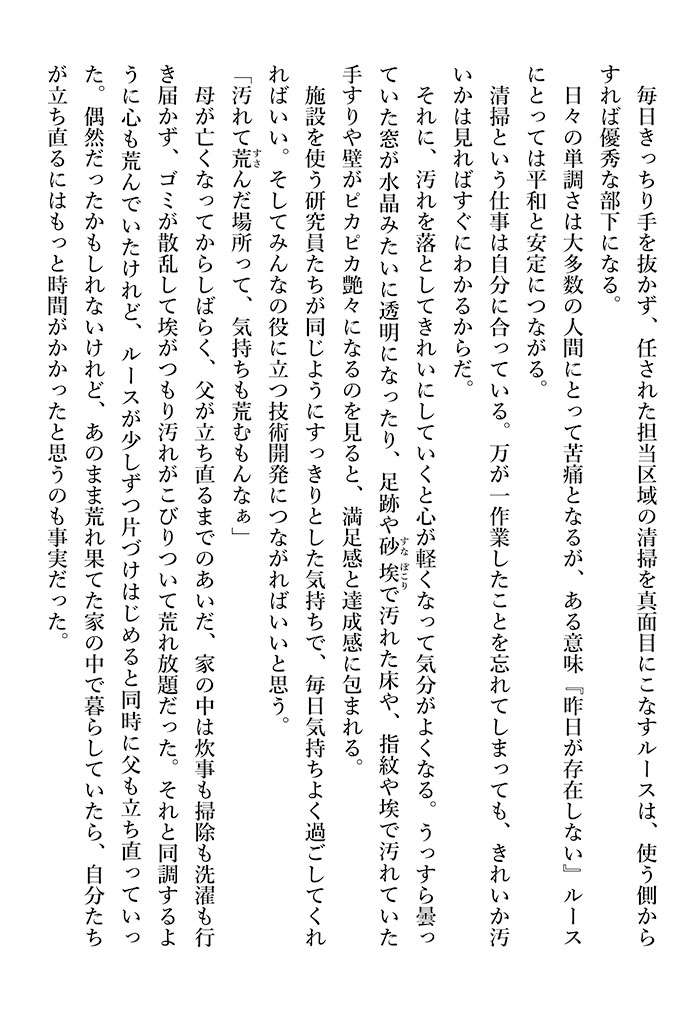 毎日きっちり手を抜かず、任された担当区域の清掃を真面目にこなすルースは、使う側から
すれば優秀な部下になる。
日々の単調さは大多数の人間にとって苦痛となるが、ある意味『昨日が存在しない』ルース
にとっては平和と安定につながる。
清掃という仕事は自分に合っている。万が一作業したことを忘れてしまっても、きれいか汚
いかは見ればすぐにわかるからだ。
それに、汚れを落としてきれいにしていくと心が軽くなって気分がよくなる。うっすら曇っ
ていた窓が水晶みたいに透明になったり、足跡や砂埃で汚れた床や、指紋や埃で汚れていた
手すりや壁がピカピカ艶々になるのを見ると、満足感と達成感に包まれる。
施設を使う研究員たちが同じようにすっきりとした気持ちで、毎日気持ちよく過ごしてくれ
ればいい。そしてみんなの役に立つ技術開発につながればいいと思う。
「汚れて荒んだ場所って、気持ちも荒むもんなぁ」
母が亡くなってからしばらく、父が立ち直るまでのあいだ、家の中は炊事も掃除も洗濯も行
き届かず、ゴミが散乱して埃がつもり汚れがこびりついて荒れ放題だった。それと同調するよ
うに心も荒んでいたけれど、ルースが少しずつ片づけはじめると同時に父も立ち直っていっ
た。偶然だったかもしれないけれど、あのまま荒れ果てた家の中で暮らしていたら、自分たち
が立ち直るにはもっと時間がかかったと思うのも事実だった。